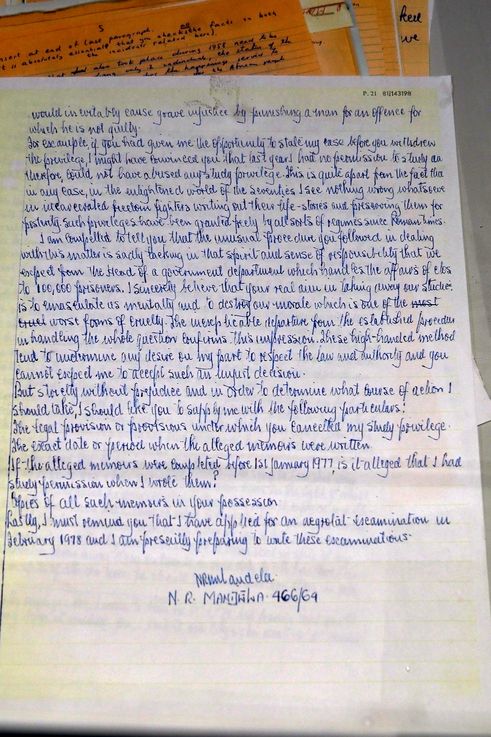 S
insert at end of last paragraph.
it is absolutely essential that you check the facts in both
the incidents related here).
that did also took place during 1958 need to be
P. 21 811143198
would inevitably cause grave injustice by punishing a man for an offence for
which he is not guilty.
For example, if you had given me the opportunity to state my case before you withdrew
the privilege, I might have convinced you that last years had no permission to study and
therefore, could not have abused any study privilege. This is quite apart from the fact that
in any case, in the enlightened world of the seventies I see nothing wrong whatsoever
in incarcerated freedom fighters writing out their life-stories and preserving them for
posterity. Such privileges have been granted freely by all sorts of regimes since Roman times.
I am compelled to tell you that the unusual procedure you followed in dealing
with this matter is sadly lacking in that spirit and sense of responsibility that we
expect from the Head of a government department which handles the affairs of close
to 100,000 prisoners. I sincerely believe that your real aim in taking away our studies
is to emasculate us mentally and to destroy our morale which is one of the most
cruel worst forms of cruelty. The inexplicable departure from the established procedure
in handling the whole question confirms this impression. These high-handed methods
tend to undermine any desire on my part to respect the law and authority and you
cannot expect me to accept such an unjust decision.
But strictly without prejudice and in order to determine what course of action I
should take, I should like you to supply me with the following particulars:
The legal provision or provisions under which you cancelled my study privilege.
The exact date or period when the alleged memoirs were written.
If the alleged memoirs were completed before 1st January 1977, is it alleged that I had
study permission when I wrote them?
Copies of all such memoirs in your possession.
Lastly, I must remind you that I have applied for an aegrotat examination in
February 1978 and I am presently preparing to write these examinations.
NRMandela.
N. R. MANDELA 466/64
we